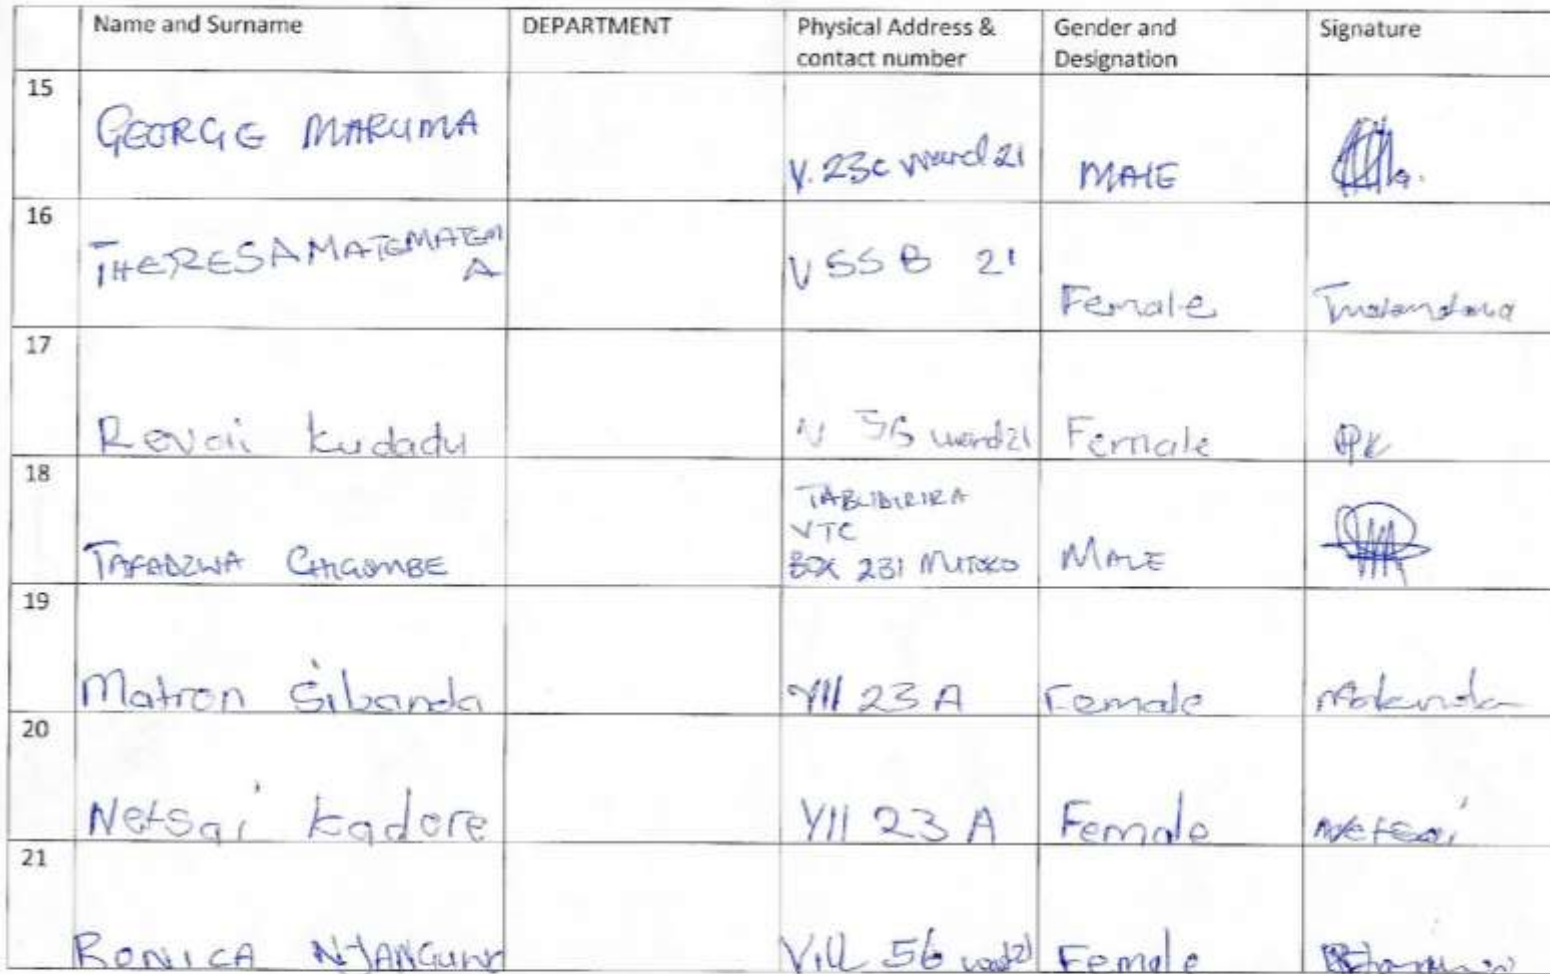 Name and Surname DEPARTMENT Physical Address & contact number Gender and Designation Signature
15 GEORGE MARUMA V. 23c ward 21 MALE
16 THERESA MATEMATEMA V 55 B 21 Female
17 Revai Kudadu V 56 ward 21 Female RK
18 TAFADZWA CHIGOMBE VTC BOX 231 MUTOKO MALE
19 Matron Sibanda VII 23 A Female
20 Netsai Kadore VII 23 A Female Netsai
21 RONICA Vill 56 ward 21 Female